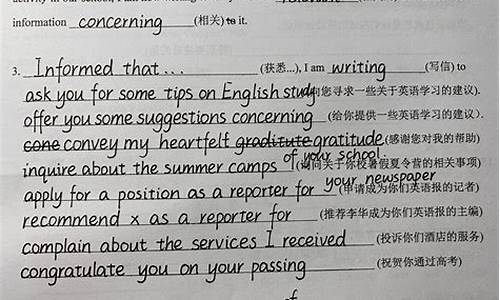 information concerning (相关) to it.
3. Informed that... (获悉...), I am writing (写信) to
ask you for some tips on English study (向您寻求一些关于英语学习的建议).
offer you some suggestions concerning (给你提供一些英语学习的建议).
cone convey my heartfelt graditute gratitude (感谢您对我的帮助)
inquire about the summer camps of your school. (询问关于你校暑假夏令营的相关事项)
apply for a position as a reporter for your newspaper (申请成为你们英语报的记者)
recommend x as a reporter for (推荐李华成为你们英语报的主编)
complain about the services I received (投诉你们酒店的服务)
congratulate you on your passing (祝贺你通过高考)
of